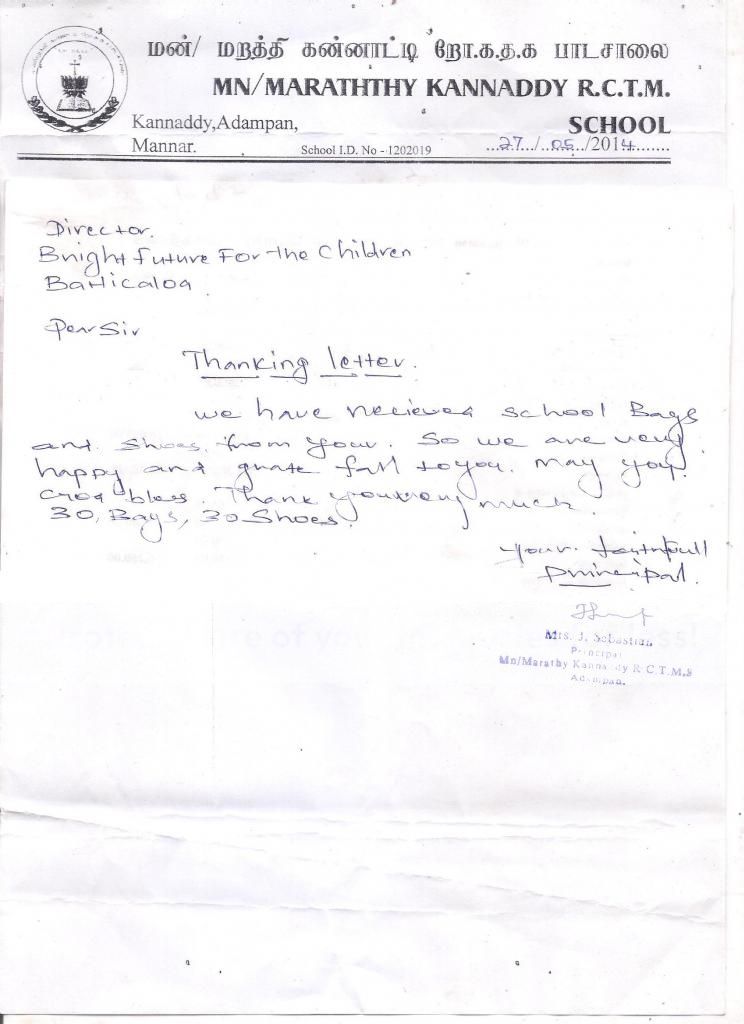 மன்/ மறத்தி கன்னாட்டி றோ.க.த.க பாடசாலை
MN/MARATHTHY KANNADDY R.C.T.M.
SCHOOL
Kannaddy,Adampan,
Mannar.
School I.D. No - 1202019
...27.../..05../2014........
Director.
Bright Future For the Children
Batticaloa
Dear Sir
Thanking letter.
we have recieved school Bags
and shoes from your. So we are very
happy and grate full to you. May you
God bless. Thank you very much.
30, Bags, 30 Shoes.
your faithfull
principal.
Mrs. J. Sebastian
Principal
Mn/Marathy Kannaddy R.C.T.M.S
Adampan.